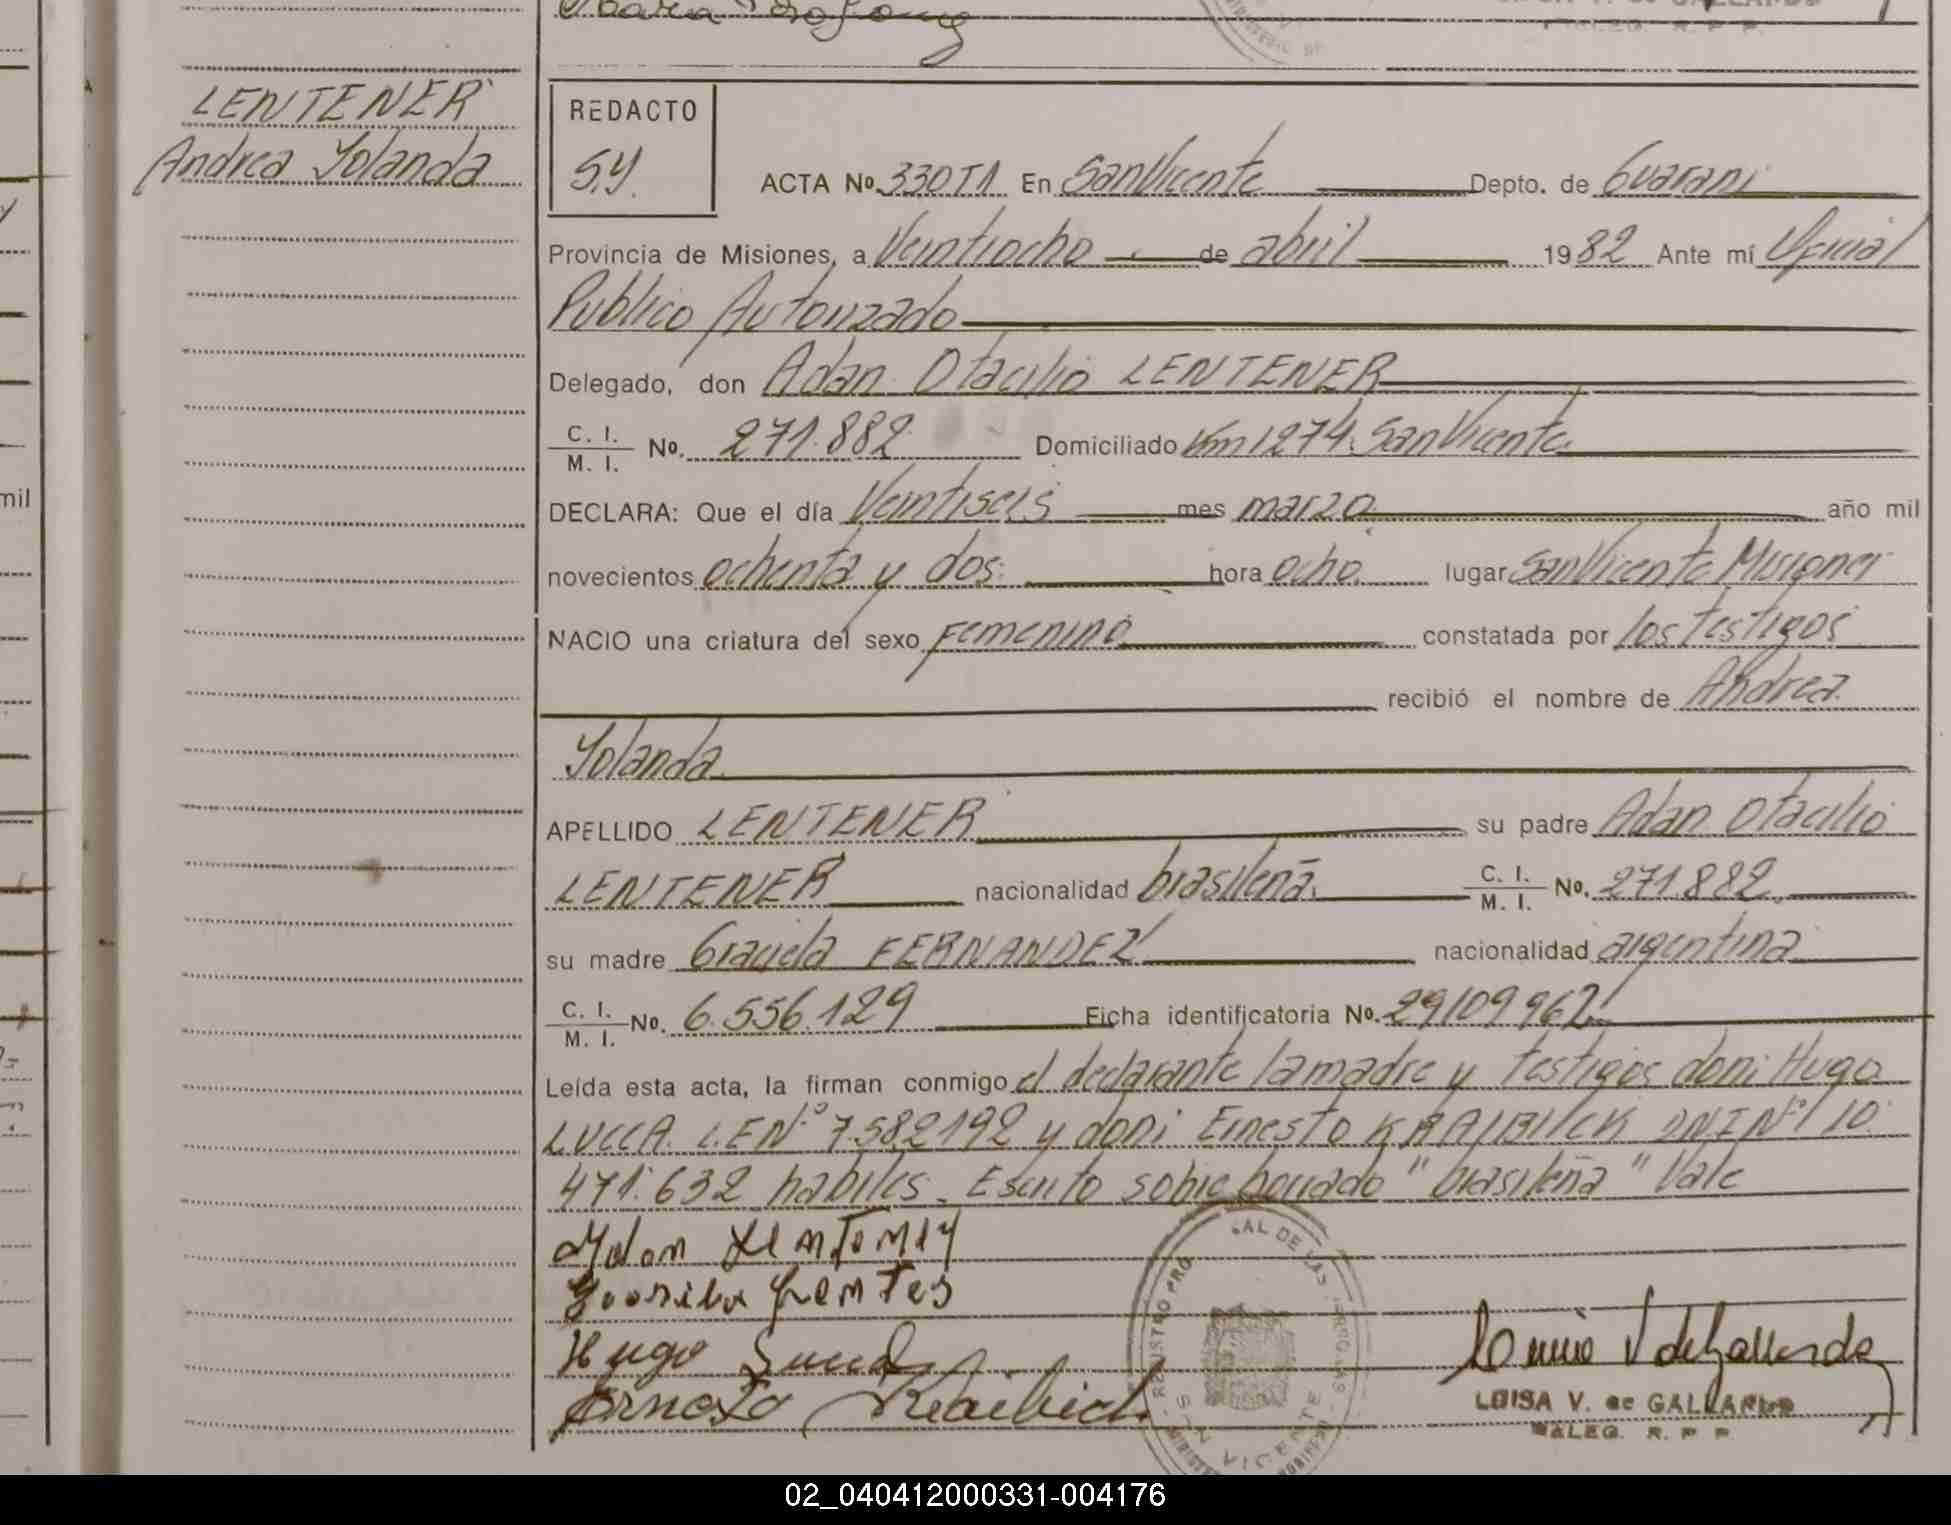 LENTENER
Andrea Yolanda
REDACTO
S.Y.
ACTA No. 330T1 En San Vicente Depto. de Guarani
Provincia de Misiones, a Veintiocho de abril 1982 Ante mí Oficial
Publico Autorizado
Delegado, don Adan Otacilio LENTENER
C. I. / M. I. No. 271.882 Domiciliado Km 1274. San Vicente
DECLARA: Que el día Veintiseis mes marzo año mil
novecientos ochenta y dos. hora ocho. lugar San Vicente Misiones
NACIO una criatura del sexo Femenino constatada por los testigos
recibió el nombre de Andrea
Yolanda
APELLIDO LENTENER su padre Adan Otacilio
LENTENER nacionalidad brasileña. C. I. / M. I. No. 271.882.
su madre Graciela FERNANDEZ nacionalidad argentina
C. I. / M. I. No. 6.556.129 Ficha identificatoria No. 29109962
Leída esta acta, la firman conmigo el declarante la madre y testigos don: Hugo
LUCCA. L.E Nº 7.582192 y don: Ernesto DNI Nº 10.
471.632 habiles. Escrito sobre borrado "brasileña" Vale
Hugo
Ernesto
SAN VICENTE
LUISA V. de GALLARDO
DALEG. R. P. P.
mil
02_040412000331-004176